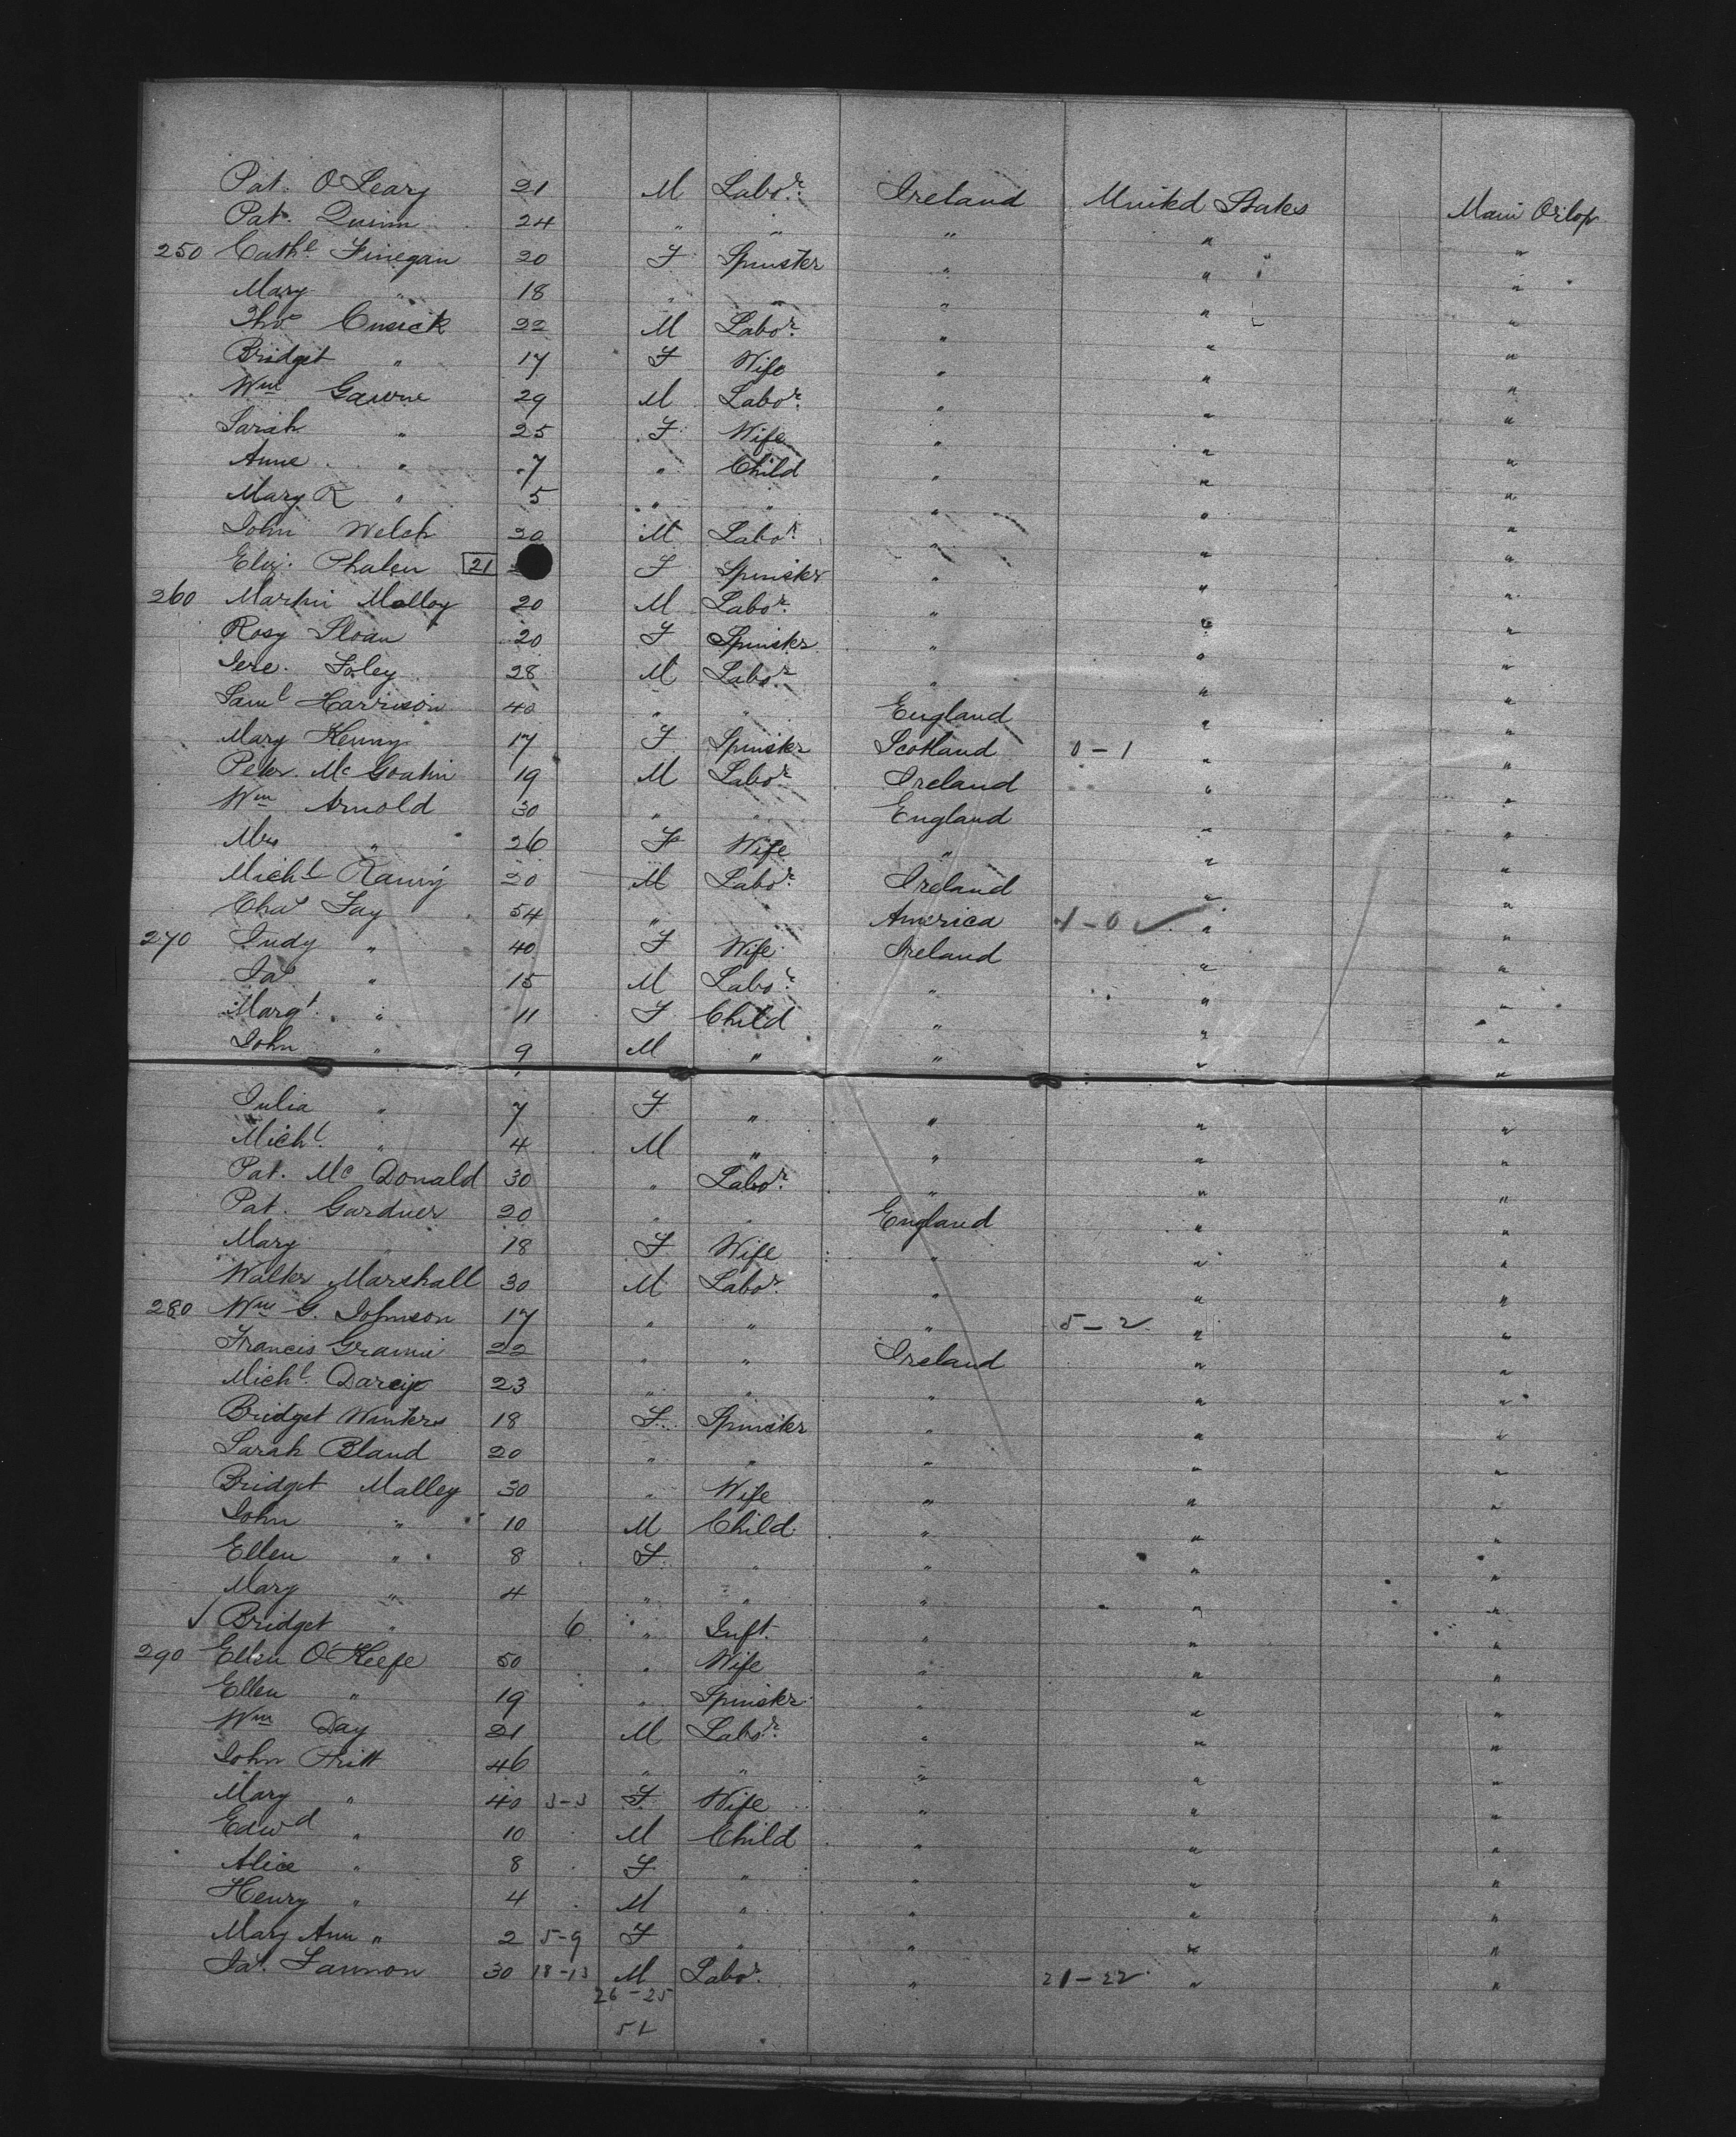 Pat. O'Leary 21 M Labor. Ireland United States Main Orlop
Pat. Quinn 24 " " " " "
250 Cathe Finegan 20 F Spinster " " "
Mary " 18 " " " "
Thos Cusick 22 M Labor. " " "
Bridget " 17 F Wife " " "
Wm Gawne 29 M Labor. " " "
Sarah " 25 F Wife " " "
Anne " 7 " Child " " "
Mary K " 5 " " " " "
John Welch 20 M Labor. " " "
Eliz. Phalen 21 F Spinster " " "
260 Martin Molloy 20 M Labor. " " "
Rosy Sloan 20 F Spinster " " "
Jere. Foley 28 M Labor. " " "
Saml Harrison 40 " " England " "
Mary Kenny 17 F Spinster Scotland 0-1 " "
Peter McGoatin 19 M Labor. Ireland " "
Wm Arnold 30 " " England " "
Mrs " 26 F Wife " " "
Michl 20 M Labor. Ireland " "
Chas Fay 54 " America 1-0 ✓ " "
270 Judy " 40 F Wife Ireland " "
Jas " 15 M Labor. " " "
Margt. " 11 F Child " " "
John " 9 M " " " "
Julia " 7 F " " " "
Michl. " 4 M " " " "
Pat. McDonald 30 " Labor. " " "
Pat. Gardner 20 " " England " "
Mary " 18 F Wife " " "
Walter Marshall 30 M Labor. " " "
280 Wm G. Johnson 17 " " " 5-2 " "
Francis 22 " " Ireland " "
Michl. Darcy 23 " " " " "
Bridget Winters 18 F Spinster " " "
Sarah Bland 20 " " " " "
Bridget Malley 30 " Wife " " "
John " 10 M Child " " "
Ellen " 8 F " " " "
Mary " 4 " " " " "
✓ Bridget " 6 " Inft. " " "
290 Ellen O'Keefe 50 " Wife " " "
Ellen " 19 " Spinster " " "
Wm Day 21 M Labor. " " "
John Pritt 46 " " " " "
Mary " 40 3-3 F Wife " " "
Edwd " 10 M Child " " "
Alice " 8 F " " " "
Henry " 4 M " " " "
Mary Ann " 2 5-9 F " " " "
Jas. Lannon 30 18-13 M Labor. " 21-22 " "
26-25
51